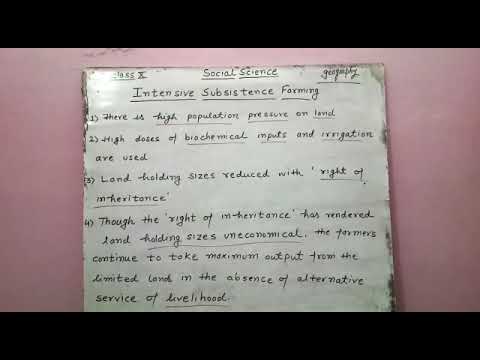 Class X Social Science geography
Intensive Subsistence Farming
1) There is high population pressure on land
2) High doses of biochemical inputs and irrigation
are used
3) Land holding sizes reduced with 'right of
in-heritance'
4) Though the 'right of in-heritance' has rendered
land holding sizes uneconomical, the farmers
continue to take maximum output from the
limited land in the absence of alternative
service of livelihood.